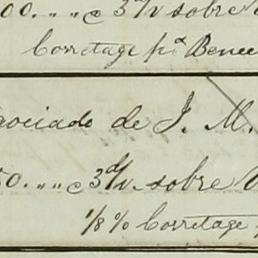 00. „ „ c 3 d/v sobre
Corretage pª Benee
gociado de J. M.
50. „ „ c 3 d/v. sobre
1/8 % Corretage